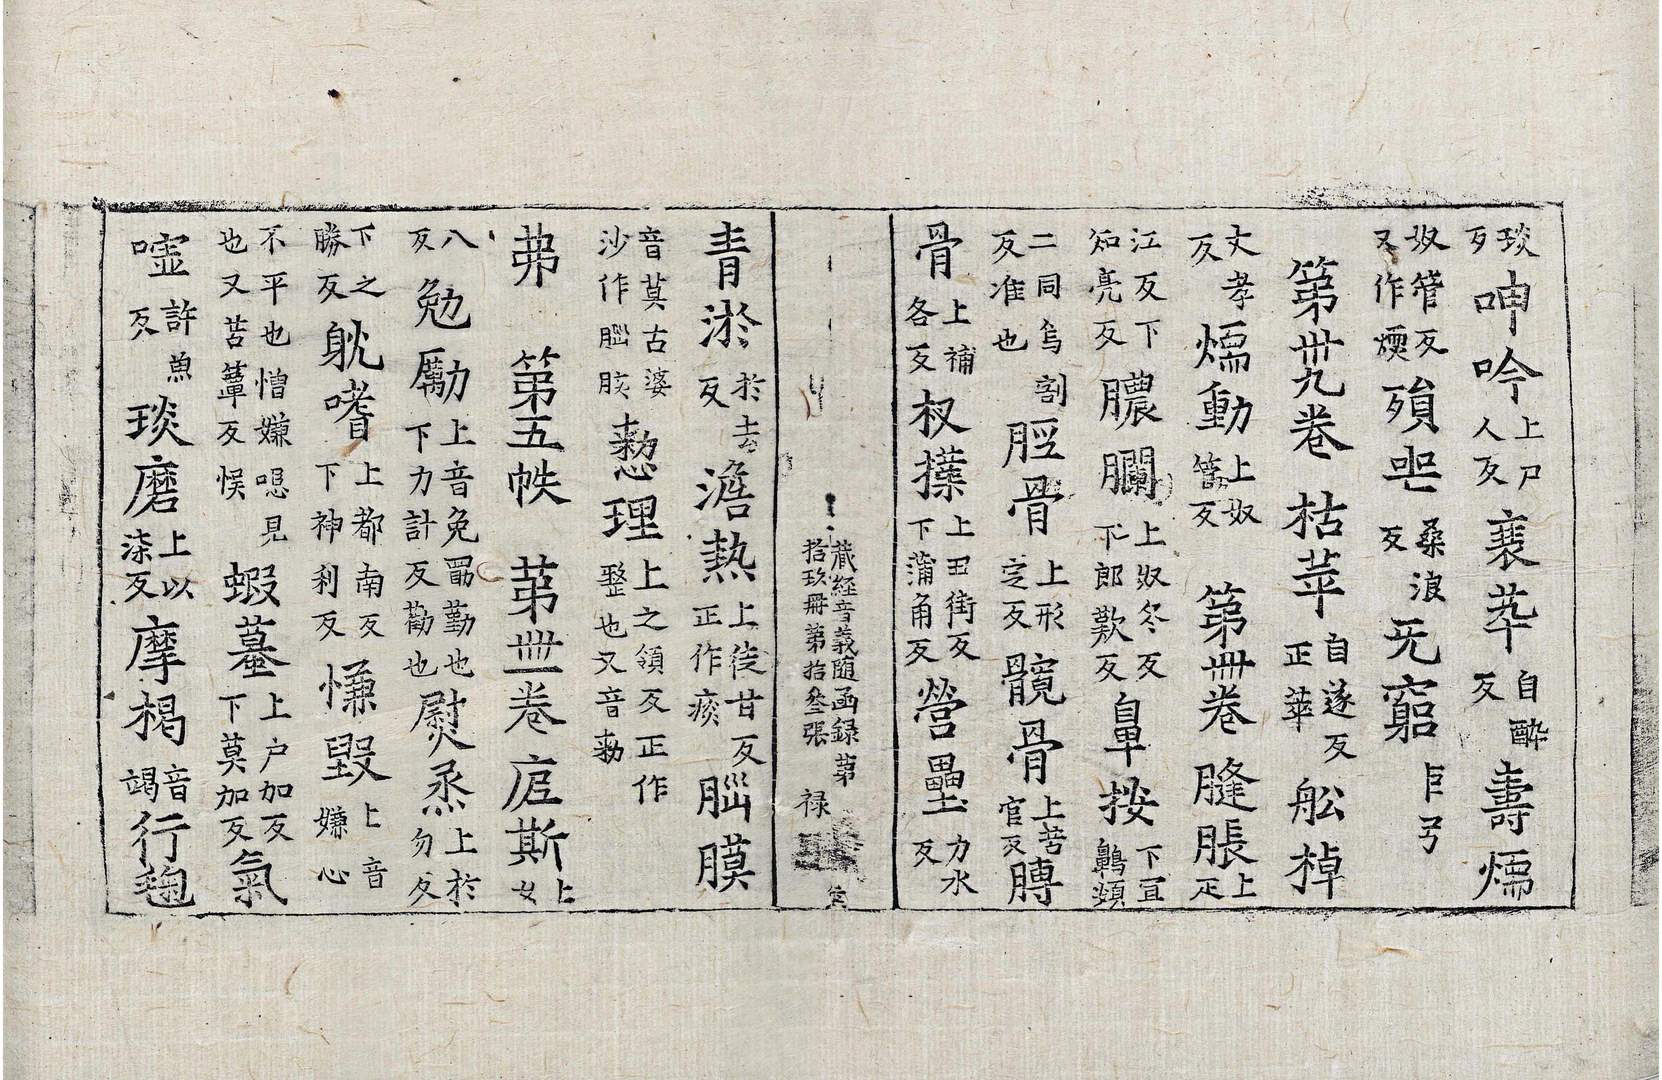 琰反呻吟上尸人反裵苹自醉反壽㷟
奴管反又作煗殞䘮桑浪反无窮巨弓
第卅九卷枯苹自遂反正莘舩棹
丈孝反㷟動上奴管反第卌卷膖脹上疋
江反下知亮反膿爛上奴冬反下郎歎反鼻按下宜鶣頞
二同烏割反准也脛骨上形定反髖骨上苦官反膊
骨上補各反杈擈上田街反下蒲角反營壘力水反
藏經音義随函録第拾玖冊第拾叄張 禄
青淤於去反澹熱上徒甘反正作痰𦛁膜
音莫古婆沙作𦛁胲憗理上之領反正作整也又音勑
弟 第五帙 第卌一卷㡳斯上女
八反勉勵上音免勗勤也下力計反勸也熨烝上於勿反
下之勝反躭嗜上都南反下神利反慊毀上音嫌心
不平也憎嫌𢙣見也又苦簟反悮蝦蟇上户加反下莫加反氣
嘘許魚反琰磨上以染反摩楬音竭行𣯶